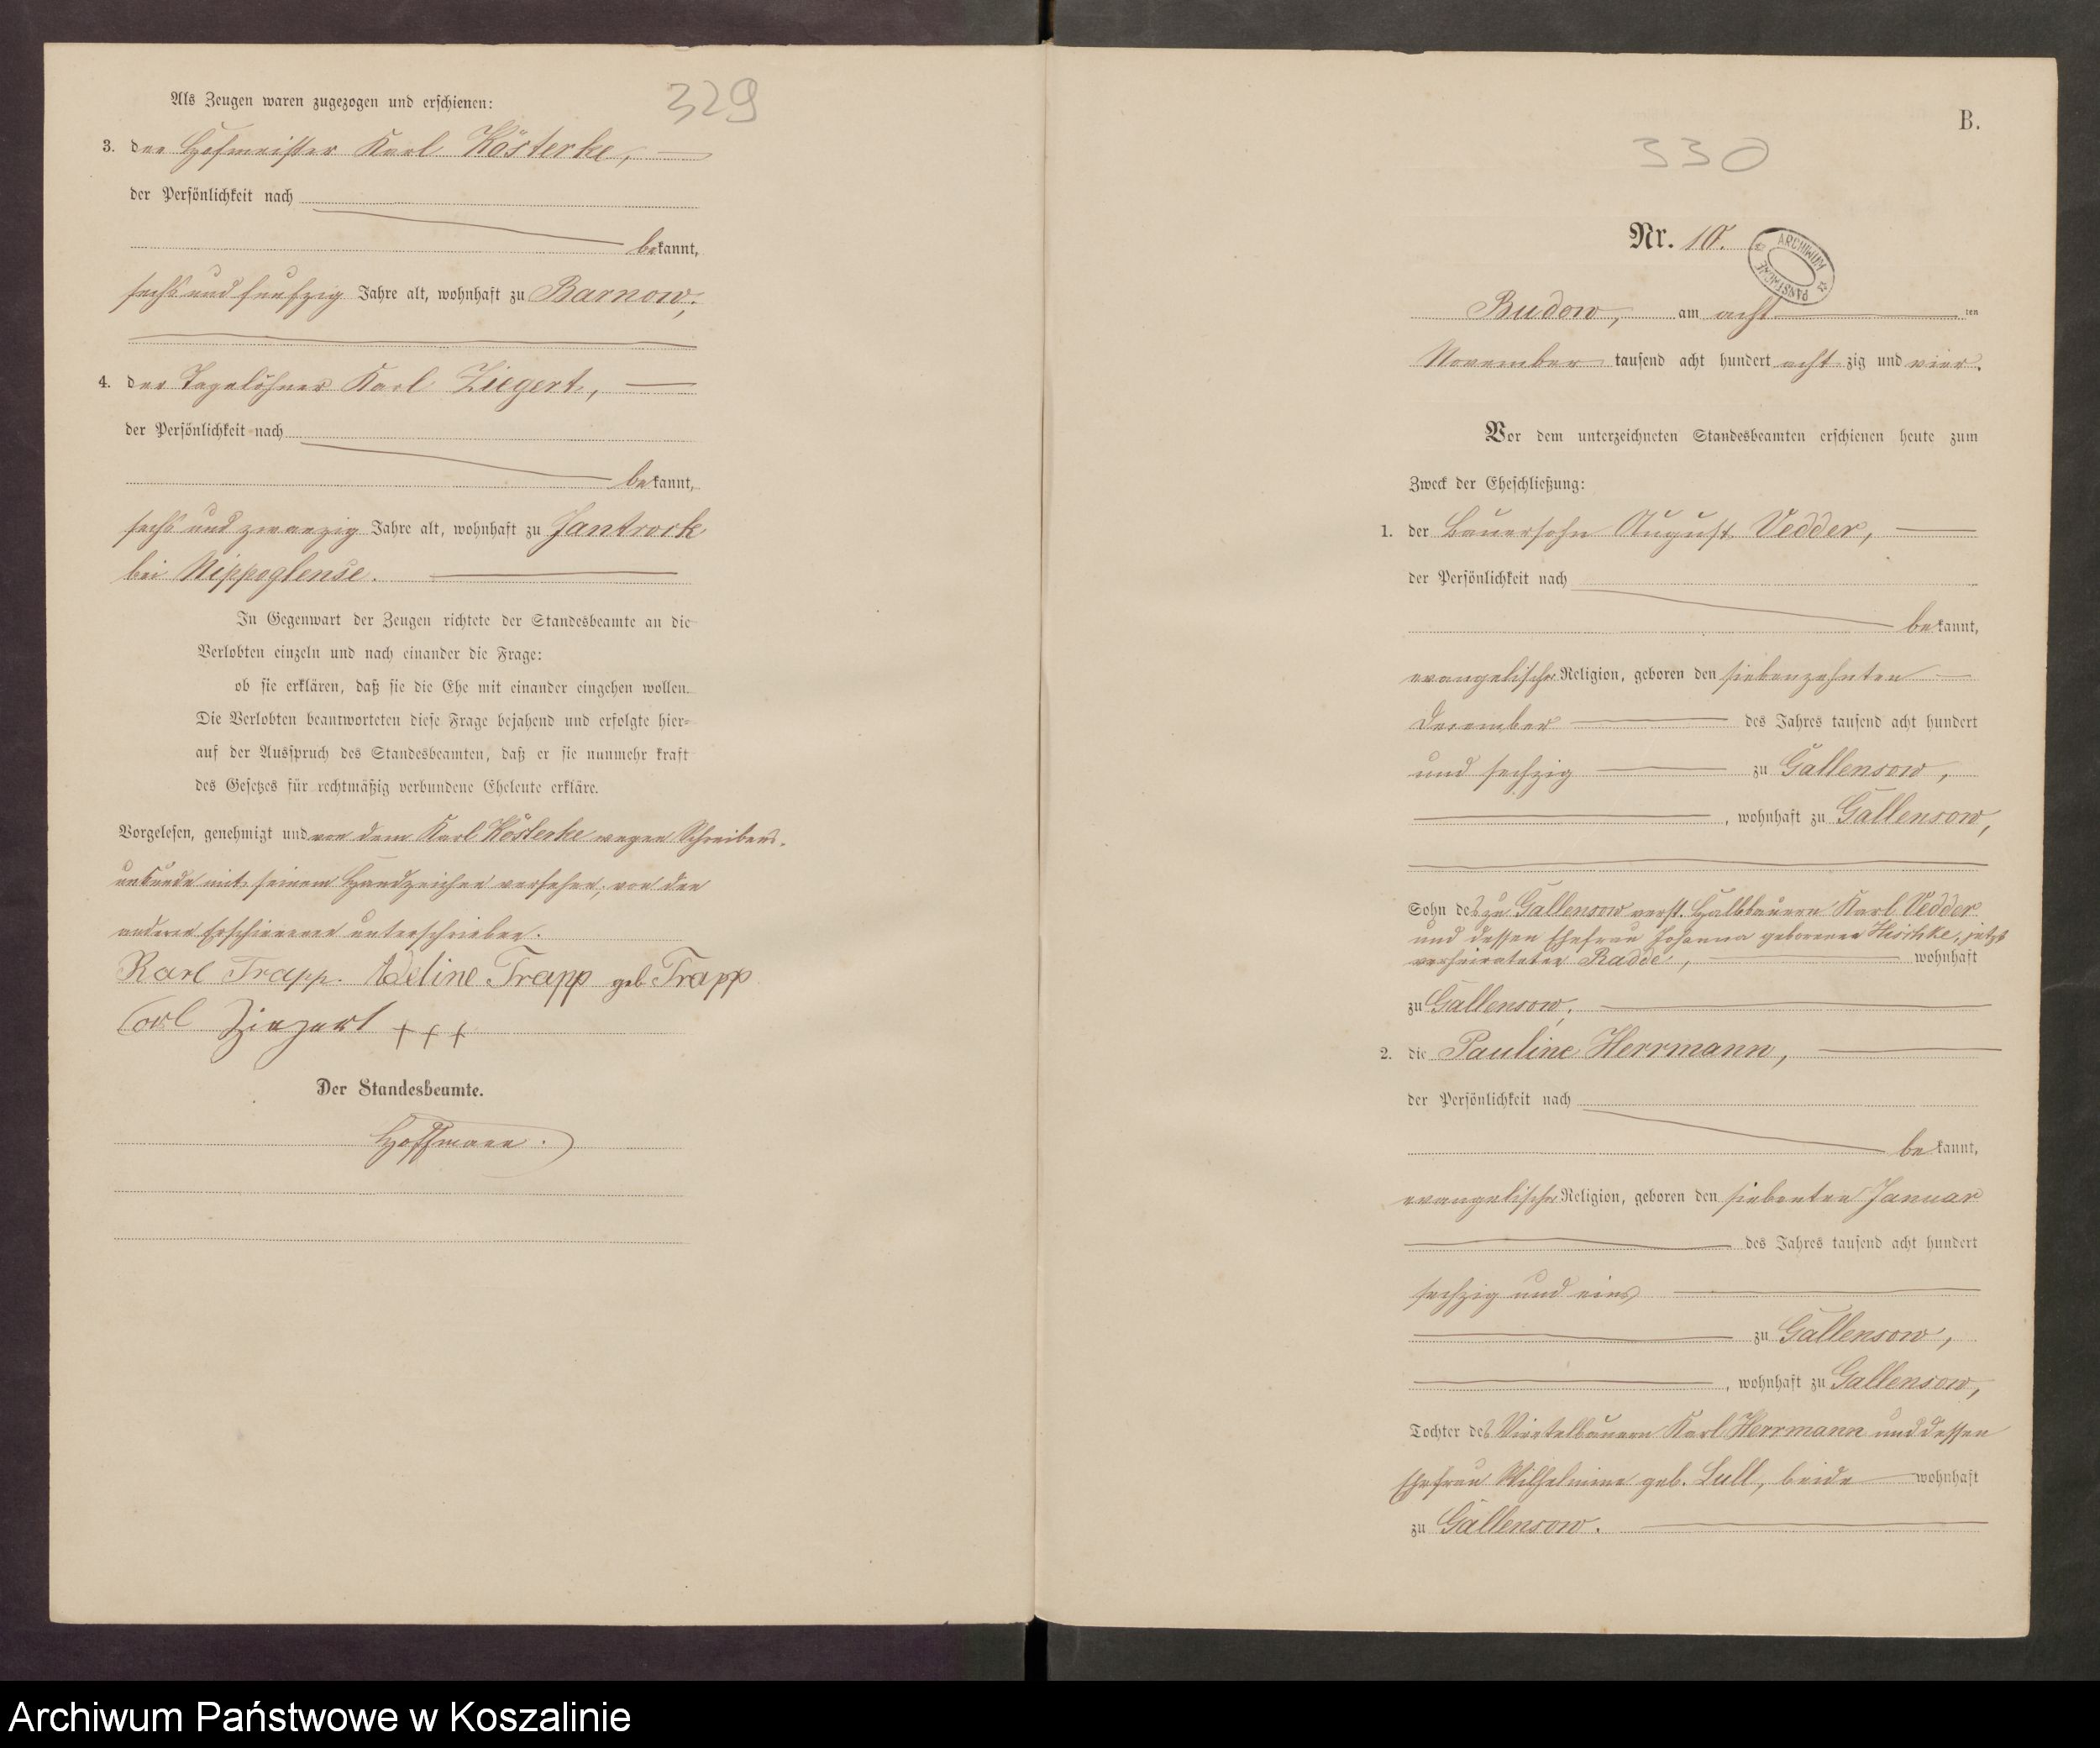 329
Als Zeugen waren zugezogen und erschienen:
3. der Hofmeister Karl Kösterke,
der Persönlichkeit nach
bekannt,
sechs und funfzig Jahre alt, wohnhaft zu Barnow;
4. der Tagelöhner Karl Ziegert,
der Persönlichkeit nach
bekannt,
sechs und zwanzig Jahre alt, wohnhaft zu Jantrock
bei Nippoglense.
In Gegenwart der Zeugen richtete der Standesbeamte an die
Verlobten einzeln und nach einander die Frage:
ob sie erklären, daß sie die Ehe mit einander eingehen wollen.
Die Verlobten beantworteten diese Frage bejahend und erfolgte hier-
auf der Ausspruch des Standesbeamten, daß er sie nunmehr kraft
des Gesetzes für rechtmäßig verbundene Eheleute erkläre.
Vorgelesen, genehmigt und von dem Karl Kösterke wegen Schreibens-
unkunde mit seinem Handzeichen versehen, von den
anderen Erschienenen unterschrieben.
Karl Trapp. Adeline Trapp geb Trapp
Carl Ziegert +++
Der Standesbeamte.
Hoffmann.
B.
330
Nr. 10.
ARCHIWUM PAŃSTWOWE
Budow, am acht ten
November tausend acht hundert acht zig und vier.
Vor dem unterzeichneten Standesbeamten erschienen heute zum
Zweck der Eheschließung:
1. der Bauersohn August Vedder,
der Persönlichkeit nach
bekannt,
evangelischer Religion, geboren den siebenzehnten
Dezember des Jahres tausend acht hundert
und sechzig zu Gallensow,
, wohnhaft zu Gallensow,
Sohn des zu Gallensow verst. Halbbauern Karl Vedder
und dessen Ehefrau Johanna geborenen Hischke, jetzt
verheirateten Radde, wohnhaft
zu Gallensow;
2. die Pauline Herrmann,
der Persönlichkeit nach
bekannt,
evangelischer Religion, geboren den siebenten Januar
des Jahres tausend acht hundert
sechzig und eins
zu Gallensow,
, wohnhaft zu Gallensow,
Tochter des Viertelbauern Karl Herrmann und dessen
Ehefrau Wilhelmine geb. Lull, beide wohnhaft
zu Gallensow.
Archiwum Państwowe w Koszalinie